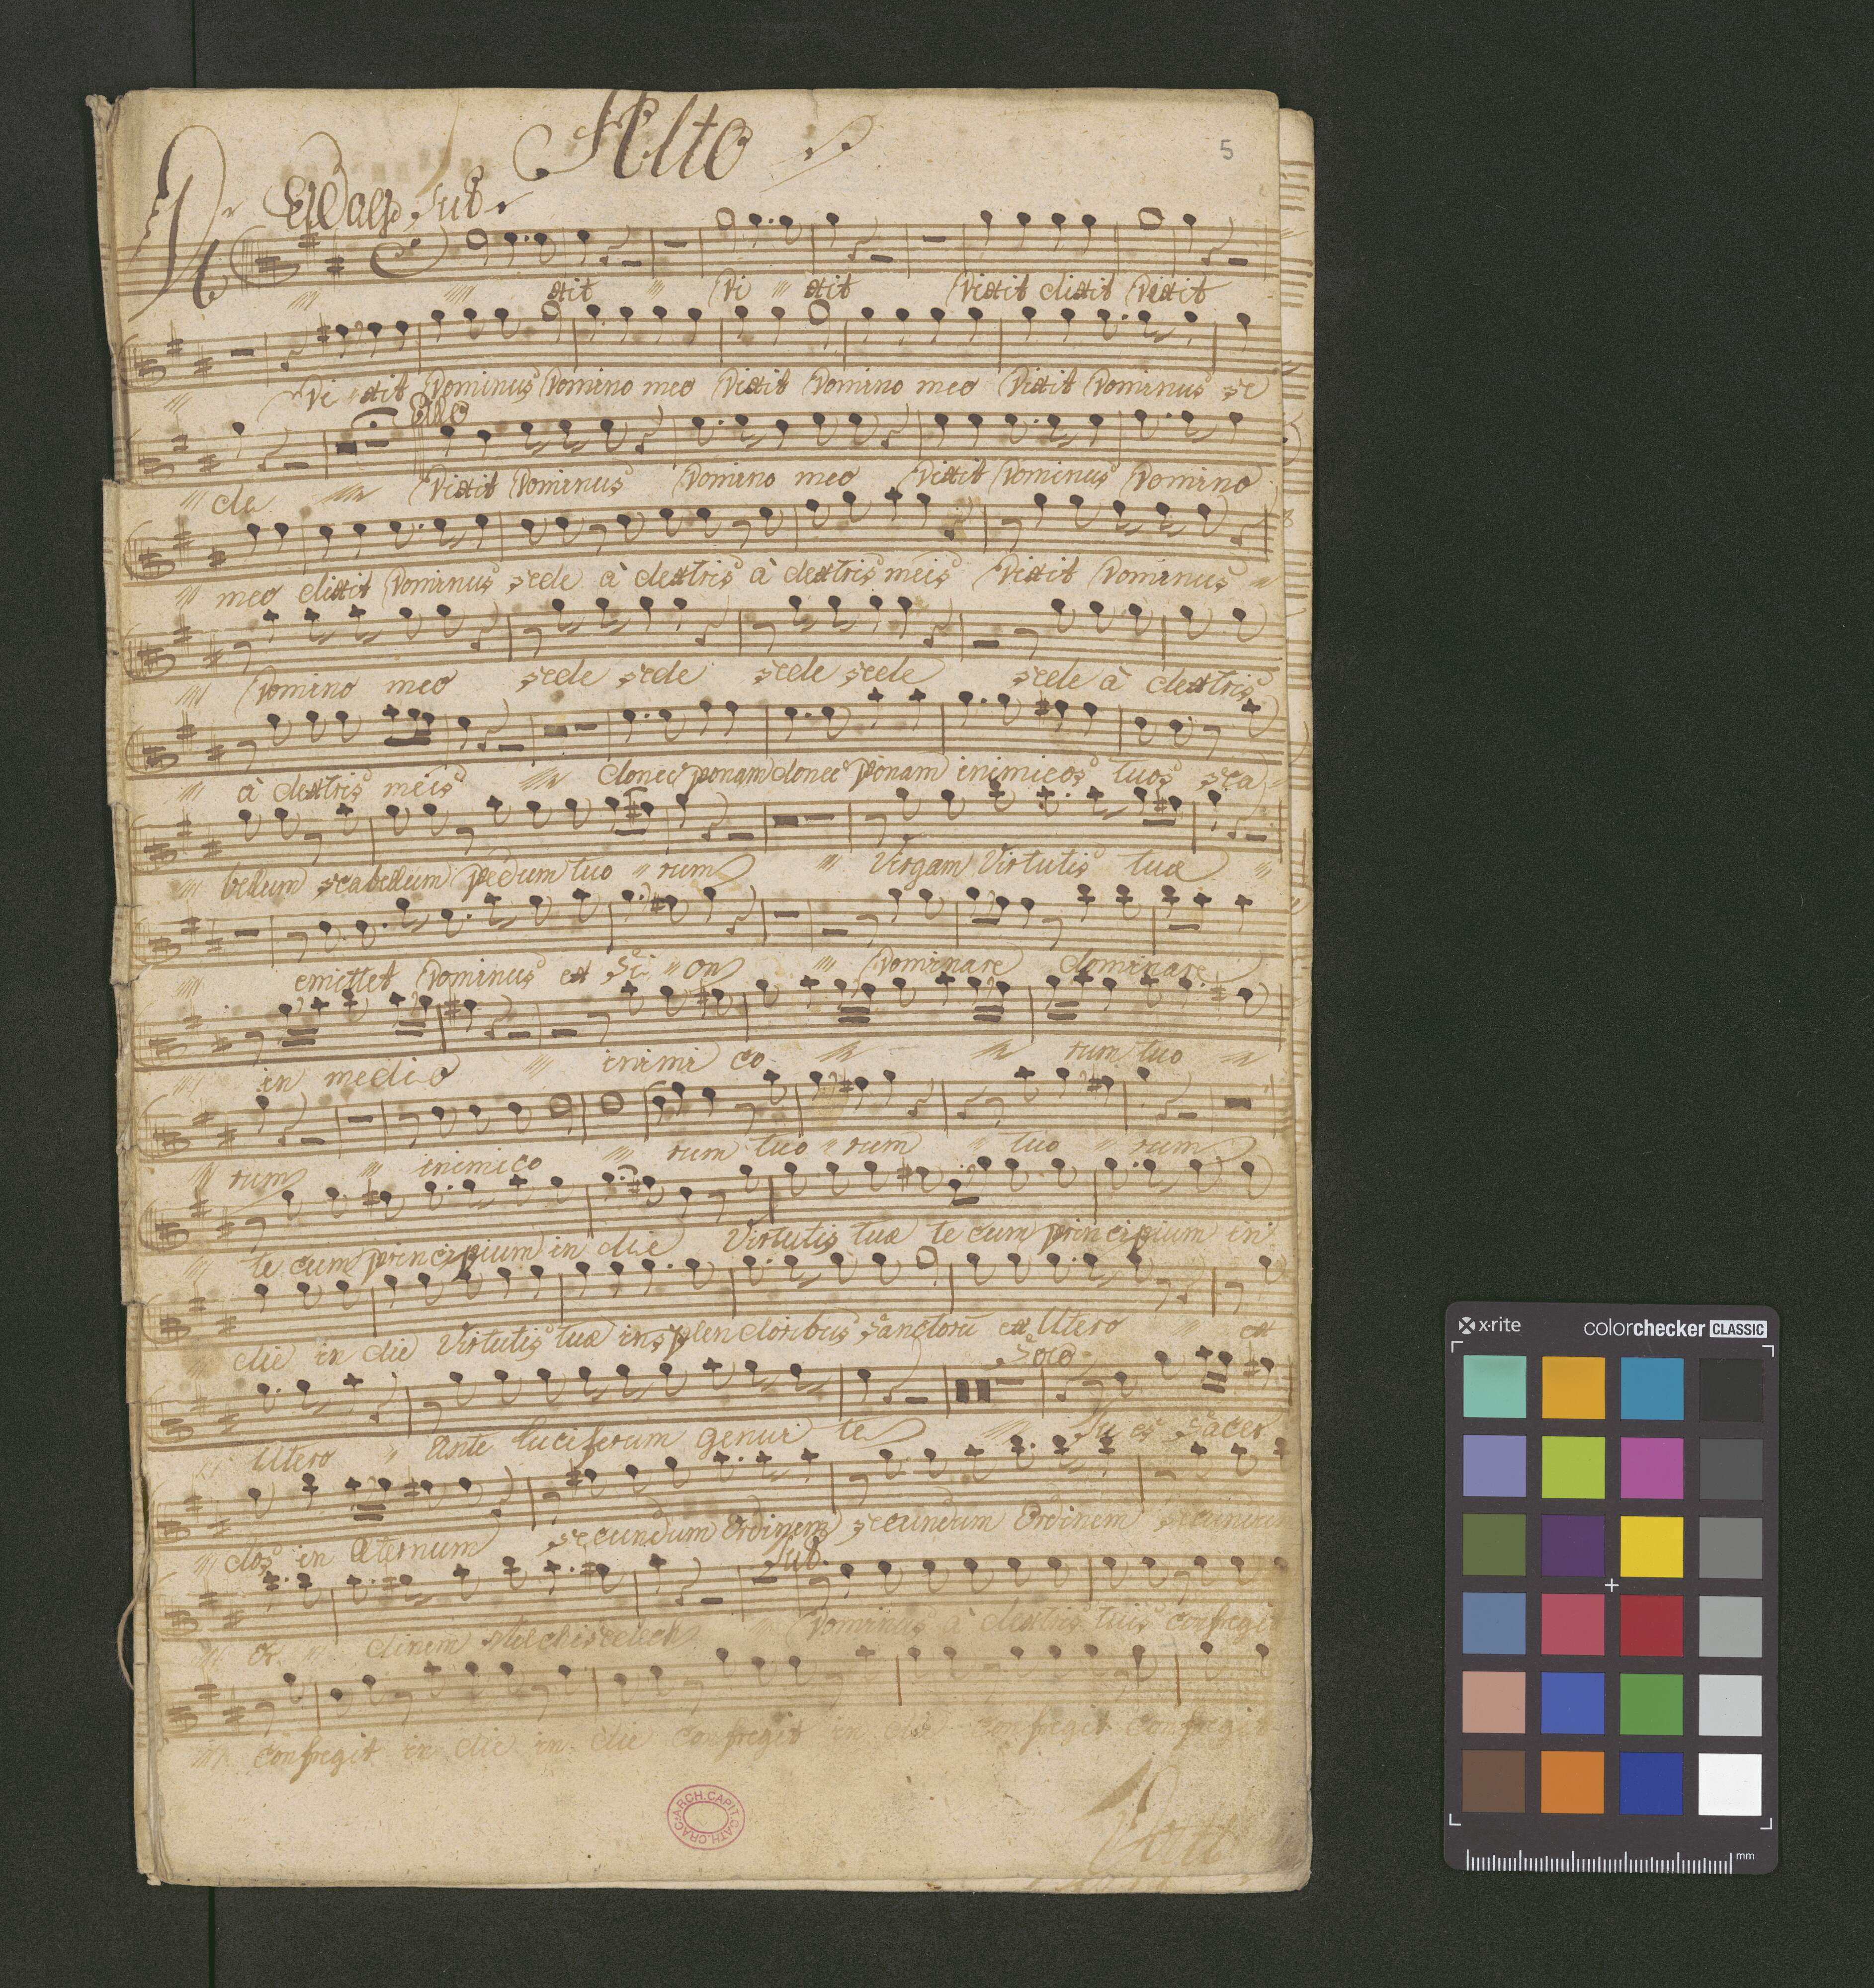 Alto
5
Sub.
Dixit Di xit Dixit dixit Dixit
Di xit Dominus Domino meo Dixit Domino meo Dixit Dominus se
Allo
de Dixit Dominus Domino meo Dixit Dominus Domino
meo dixit Dominus sede à dextris à dextris meis Dixit Dominus
Domino meo sede sede sede sede sede à dextris
à dextris meis donec ponam donec ponam inimicos tuos sca
bellum scabellum pedum tuo rum Virgam Virtutis tuæ
emittet Dominus ex Si on Dominare dominare
in medi o inimi co rum tuo
rum inimico rum tuo rum tuo rum
te cum principium in die Virtutis tuæ te cum principium in
die in die Virtutis tuæ in splendoribus Sanctorū ex Utero ex
Solo
Utero Ante luciferum genui te Tu es Sacer
dos in Æternum secundum Ordinem secundum Ordinem secundum
Sub.
Or dinem Melchisedech Dominus à dextris tuis confregit
confregit in die in die confregit in die confregit confregit
ARCH.CAPIT.CATH.CRAC.
x·rite
colorchecker CLASSIC
mm